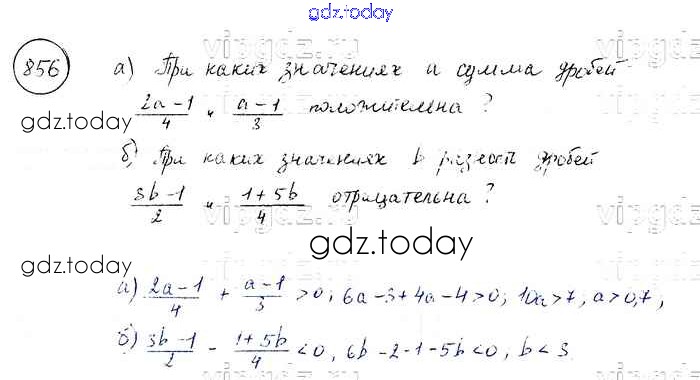 gdz.today
856
а) При каких значениях а сумма дробей
(2a-1)/4 и (a-1)/3 положительна?
gdz.today
б) При каких значениях b разность дробей
(3b-1)/2 и (1+5b)/4 отрицательна?
vipgdz
gdz.today
а) (2a-1)/4 + (a-1)/3 > 0; 6a-3+4a-4>0; 10a>7, a>0,7,
б) (3b-1)/2 - (1+5b)/4 < 0, 6b-2-1-5b<0, b<3